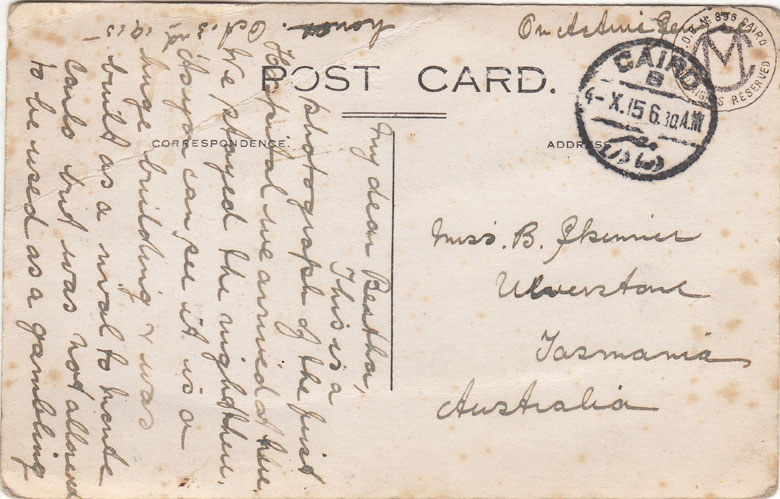 On Active Service
POST CARD.
CORRESPONDENCE.
ADDRESS
CAIRO
B
4-X.15 6.30 AM
No 898 CAIRO
RIGHTS RESERVED
Miss. B. Skinner
Ulverstone
Tasmania
Australia
My dear Bertha,
This is a
photograph of the first
Hospital we arrived at here.
We stayed the night there.
As you can see it is a
huge building & was
built as a rival to Monte
Carlo but was not allowed
to be used as a gambling
house.
Oct. 3rd 1915